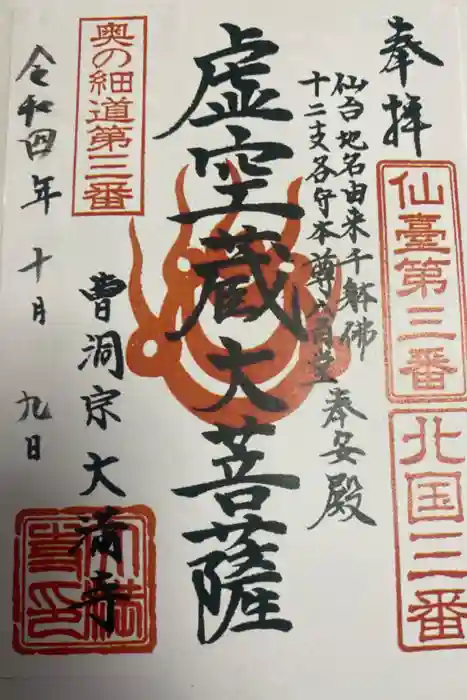 奉拝
仙臺第三番
北国三番
仙台地名由来千躰佛
十二支各守本尊八角堂奉安殿
虚空蔵大菩薩
奥の細道第三番
曹洞宗大満寺
令和四年十月九日